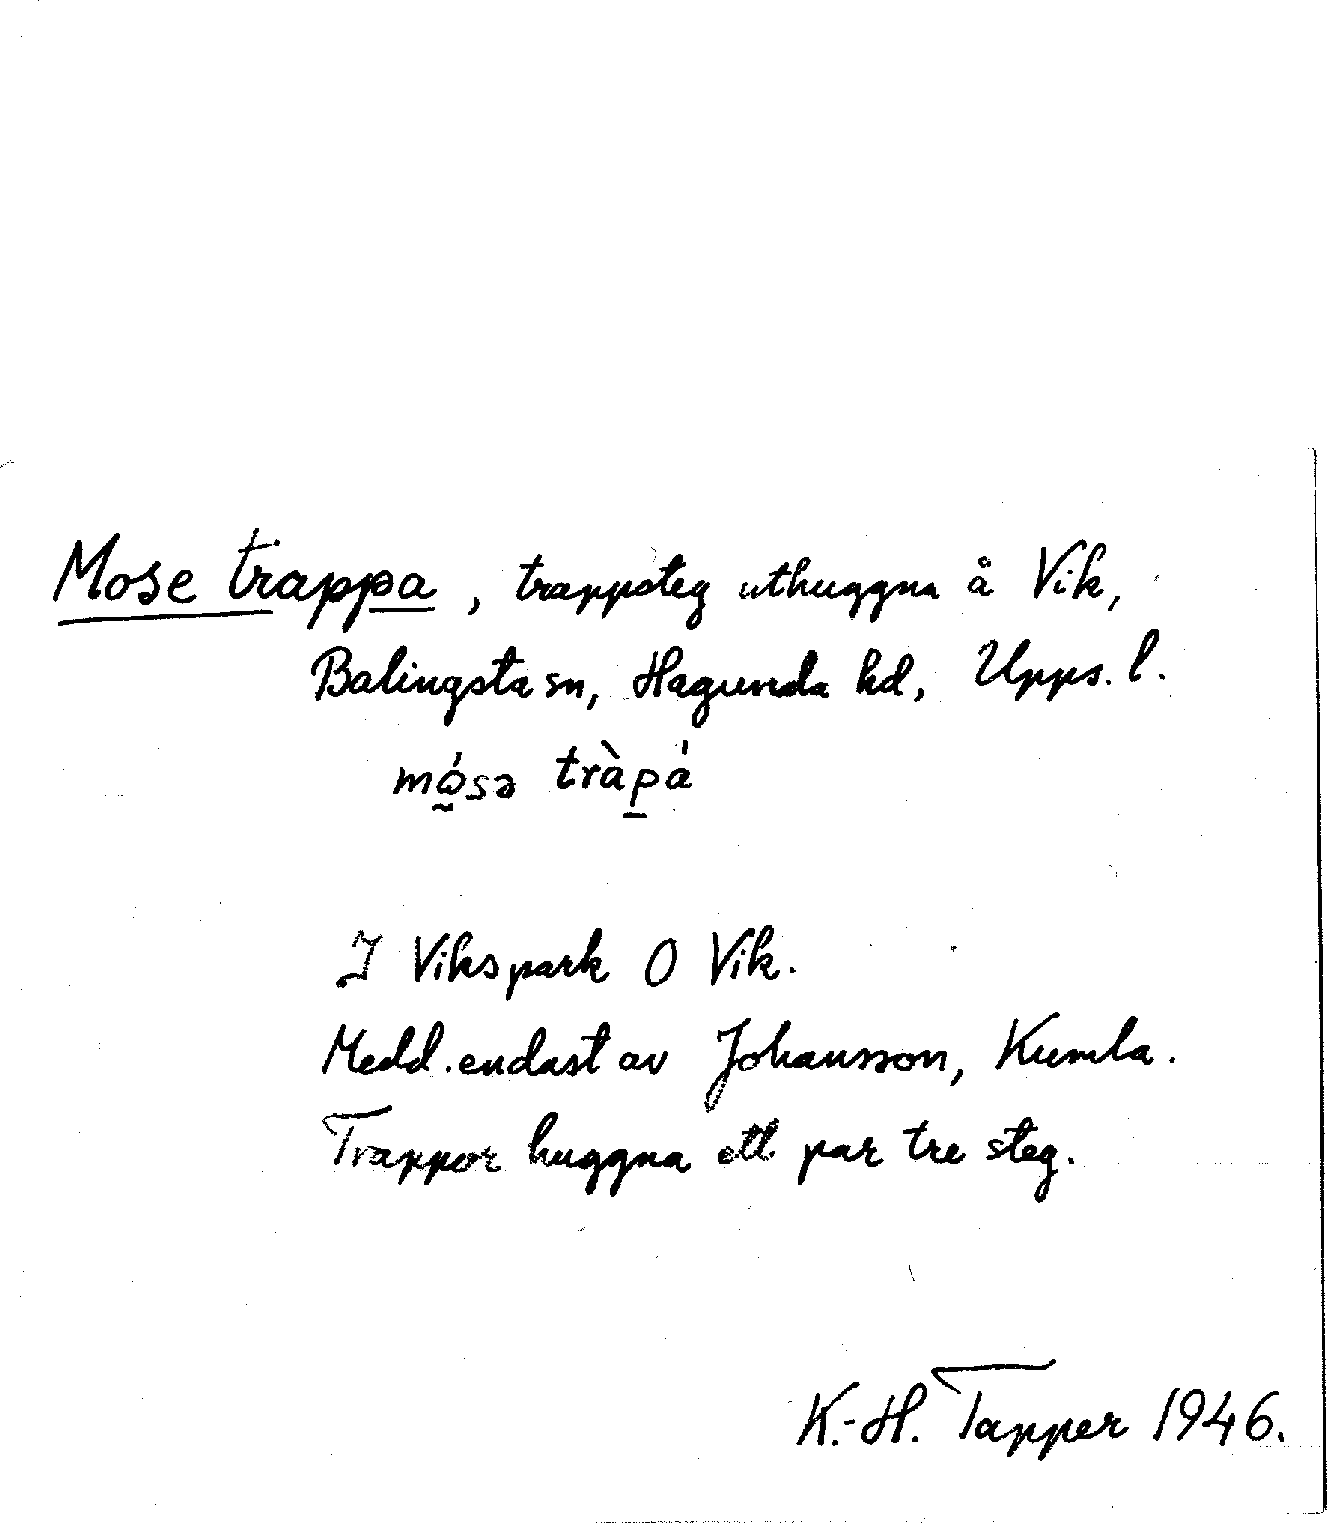 Mose trappa, trappsteg uthuggna å Vik,
Balingsta sn, Hagunda hd, Upps. l.
mó̰sə tràp̱á
I Vikspark O Vik.
Medd. endast av Johansson, Kumla.
Trappor huggna ett par tre steg.
K.-H. Tapper 1946.